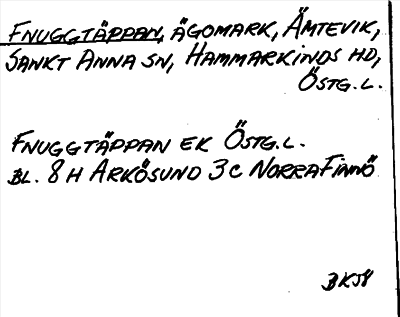 FNUGGTÄPPAN, ÄGOMARK, ÄMTEVIK,
SANKT ANNA SN, HAMMARKINDS HD,
ÖSTG.L.
FNUGGTÄPPAN EK ÖSTG.L.
BL. 8 H ARKÖSUND 3 C NORRA FINNÖ
BKJ8